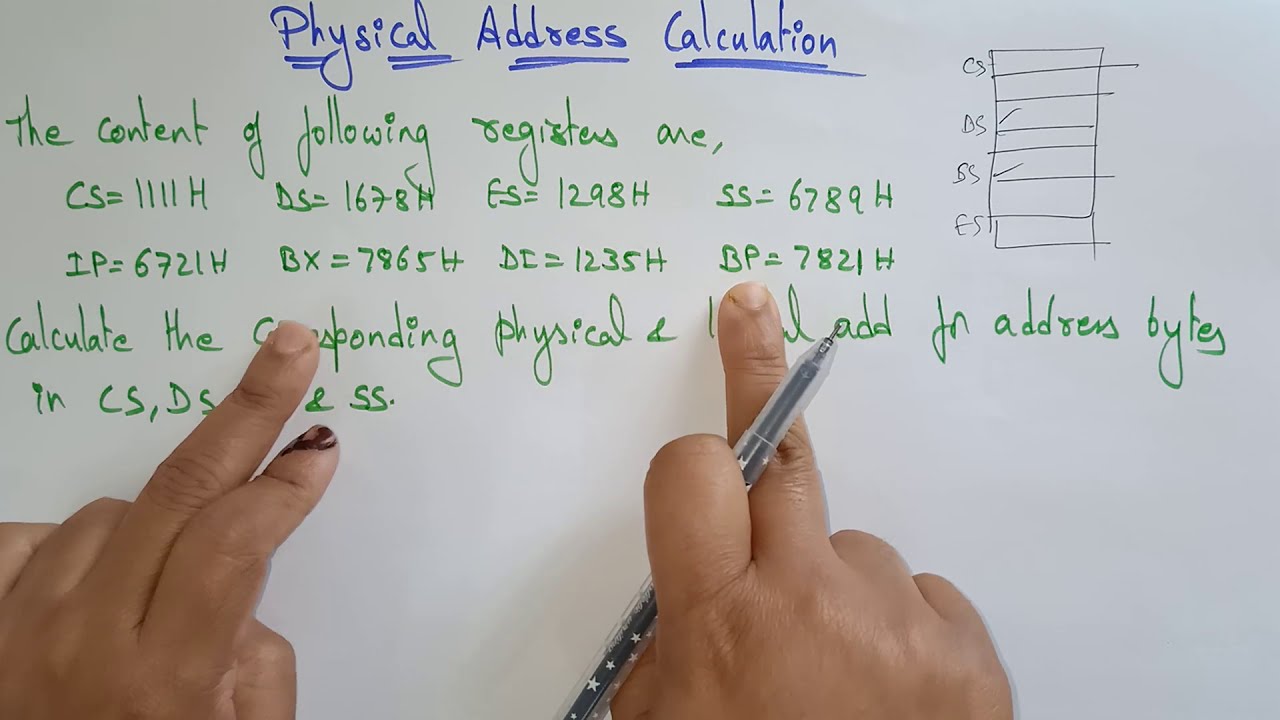 Physical Address Calculation
The content of following registers are,
CS=1111H DS=1678H ES=1298H SS=6789H
IP=6721H BX=7865H DI=1235H BP=7821H
Calculate the physical & add for address bytes
in CS, DS & SS.
CS
DS
SS
ES